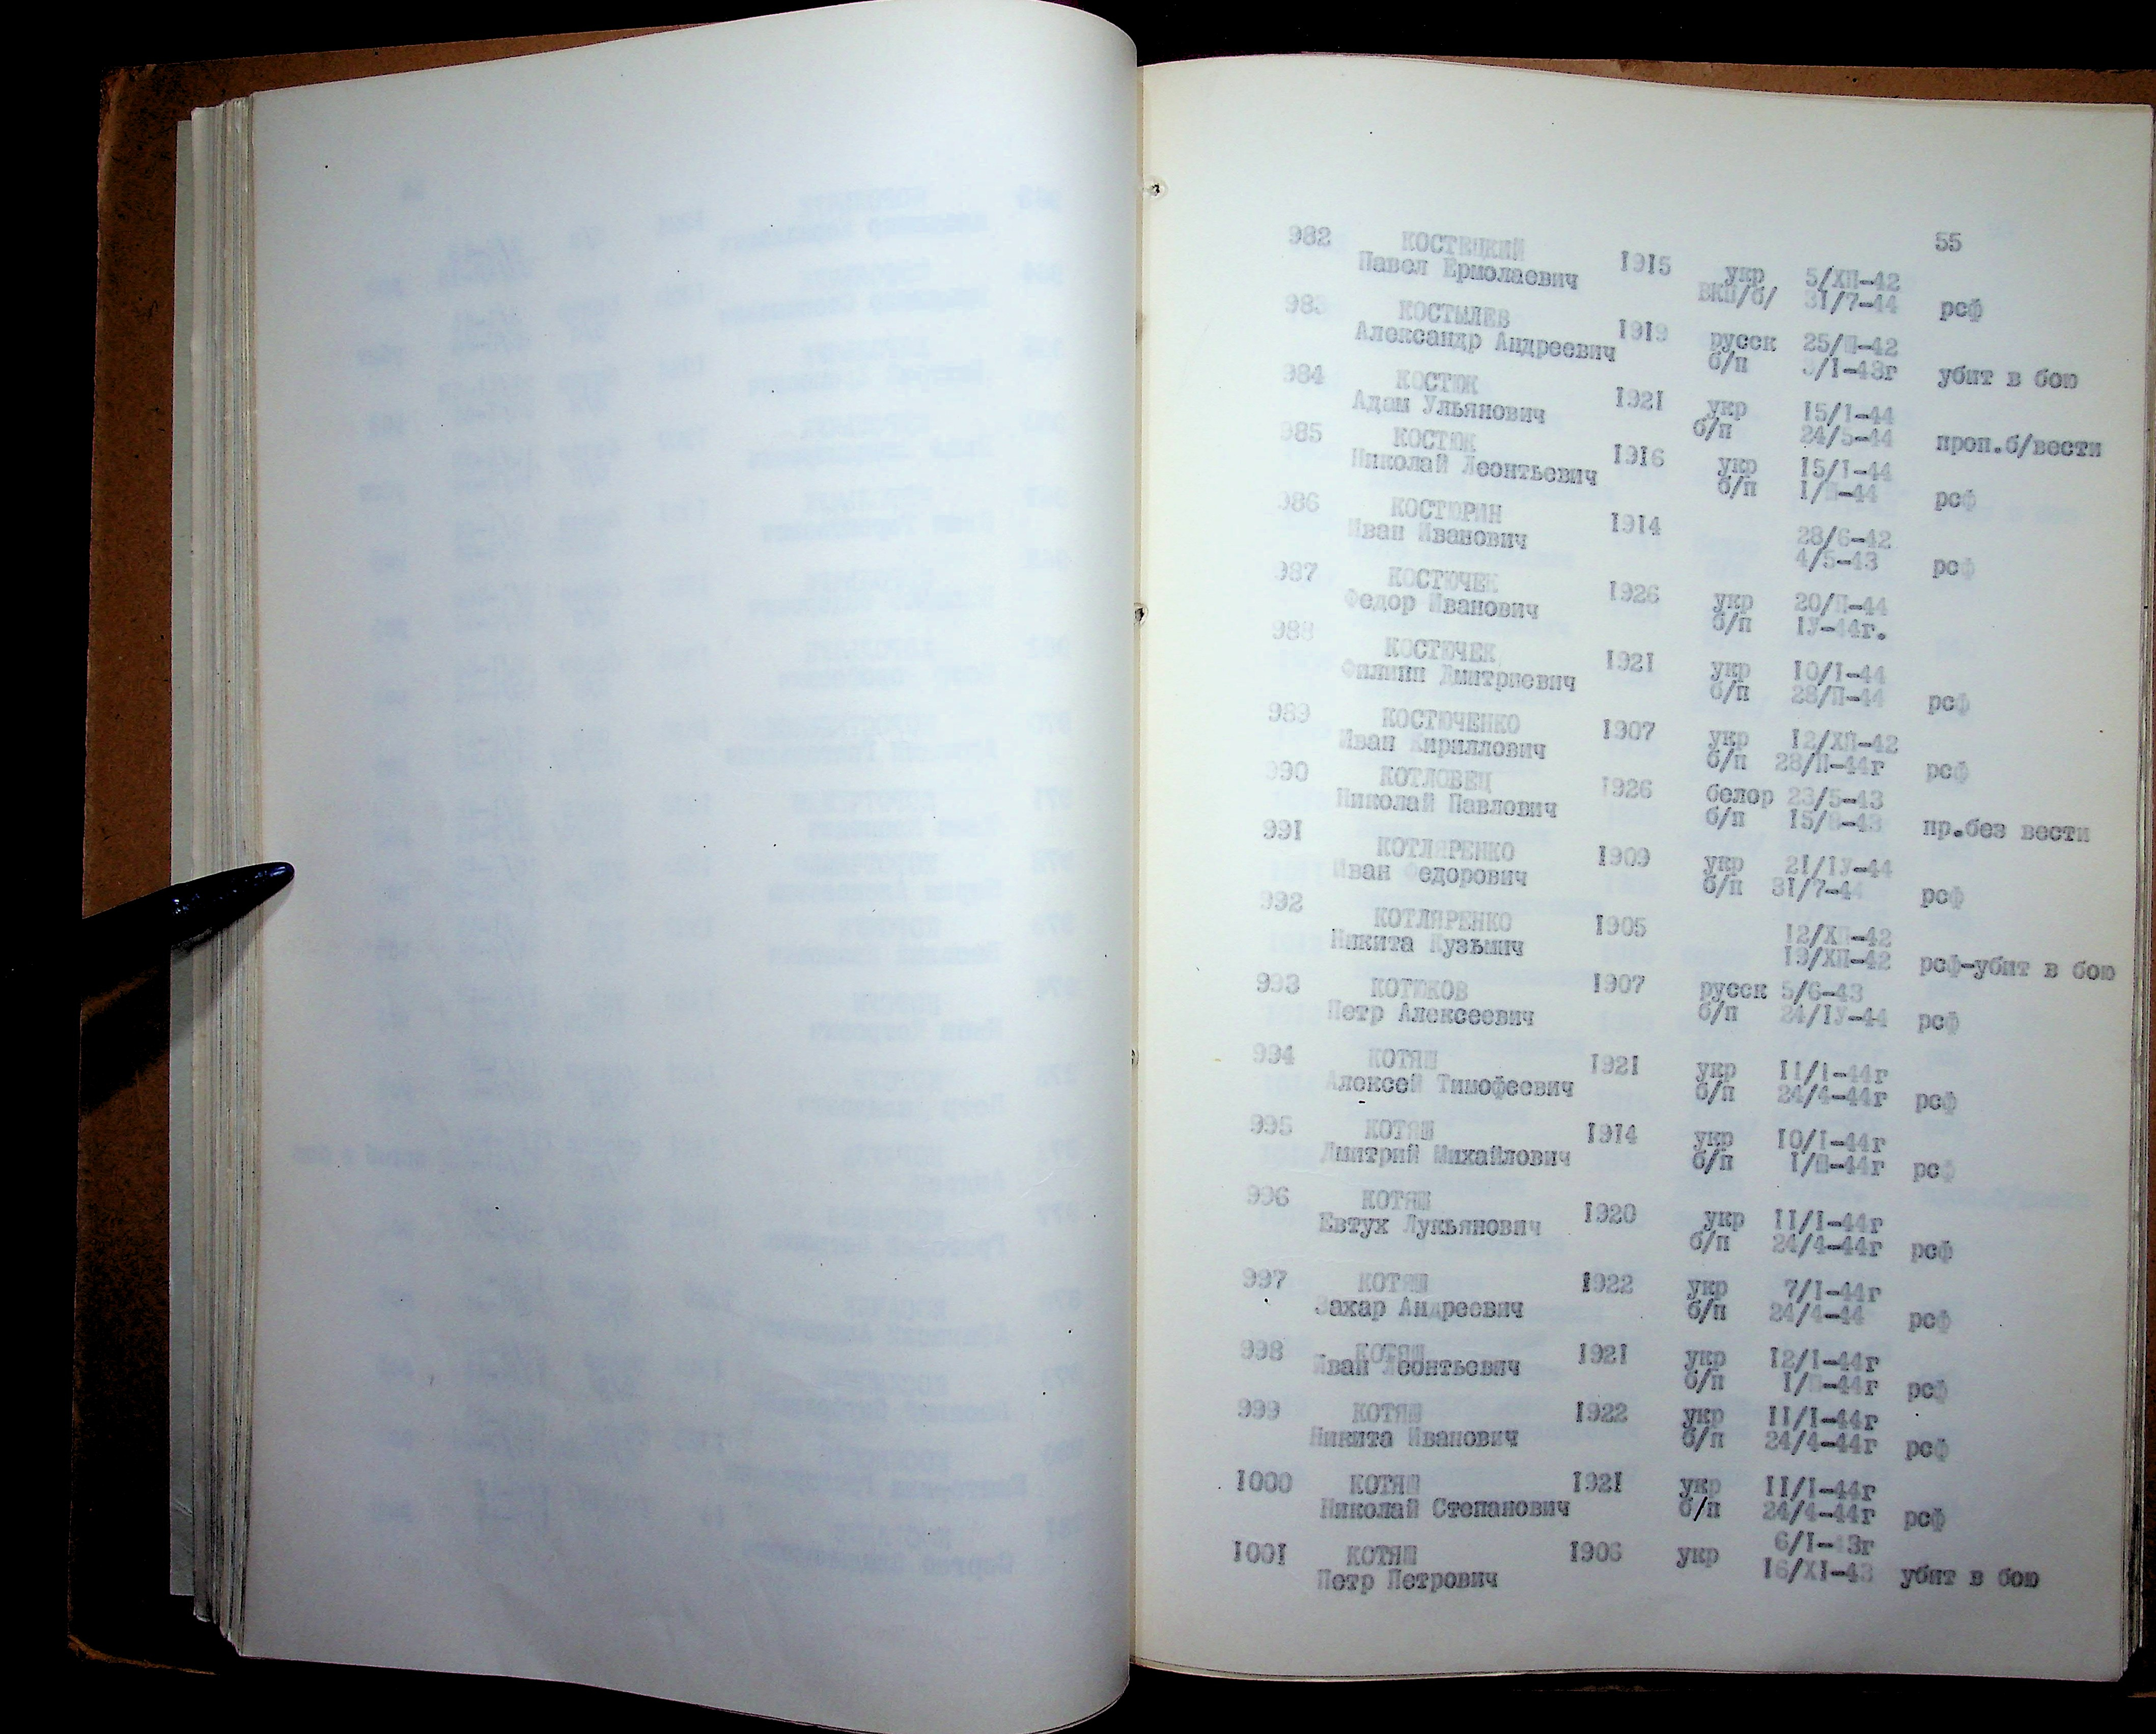 55
982 КОСТЕЦКИЙ 1915 укр 5/ХП-42
Павел Ермолаевич ВКП/б/ 31/7-44 рсф
983 КОСТЫЛЕВ 1919 русск 25/Ш-42
Александр Андреевич б/п 3/I-43г убит в бою
984 КОСТЮК 1921 укр 15/1-44
Адам Ульянович б/п 24/5-44 проп.б/вести
985 КОСТЮК 1916 укр 15/1-44
Николай Леонтьевич б/п I/Ш-44 рсф
986 КОСТЮРИН 1914 28/6-42
Иван Иванович 4/5-43 рсф
987 КОСТЮЧЕК 1926 укр 20/П-44
Федор Иванович б/п 1У-44г.
988 КОСТЮЧЕК 1921 укр 10/1-44
Филипп Дмитриевич б/п 28/П-44 рсф
989 КОСТЮЧЕНКО 1907 укр 12/ХП-42
Иван Кириллович б/п 28/П-44г рсф
990 КОТЛОВЕЦ 1926 белор 23/5-43
Николай Павлович б/п 15/8-43 пр.без вести
991 КОТЛЯРЕНКО 1909 укр 21/1У-44
Иван Федорович б/п 31/7-44 рсф
992 КОТЛЯРЕНКО 1905 12/ХП-42
Никита Кузьмич 19/ХП-42 рсф-убит в бою
993 КОТЮКОВ 1907 русск 5/6-43
Петр Алексеевич б/п 24/1У-44 рсф
994 КОТЯШ 1921 укр 11/1-44г
Алексей Тимофеевич б/п 24/4-44г рсф
995 КОТЯШ 1914 укр 10/1-44г
Дмитрий Михайлович б/п 1/Ш-44г рсф
996 КОТЯШ 1920 укр 11/I-44г
Евтух Лукьянович б/п 24/4-44г рсф
997 КОТЯШ 1922 укр 7/I-44г
Захар Андреевич б/п 24/4-44 рсф
998 КОТЯШ 1921 укр 12/1-44г
Иван Леонтьевич б/п рсф
999 КОТЯШ 1922 укр 11/I-44г
Никита Иванович б/п 24/4-44г рсф
1000 КОТЯШ 1921 укр 11/I-44г
Николай Степанович б/п 24/4-44г рсф
1001 КОТЯШ 1906 укр 6/I-43г
Петр Петрович 16/XI-43 убит в бою